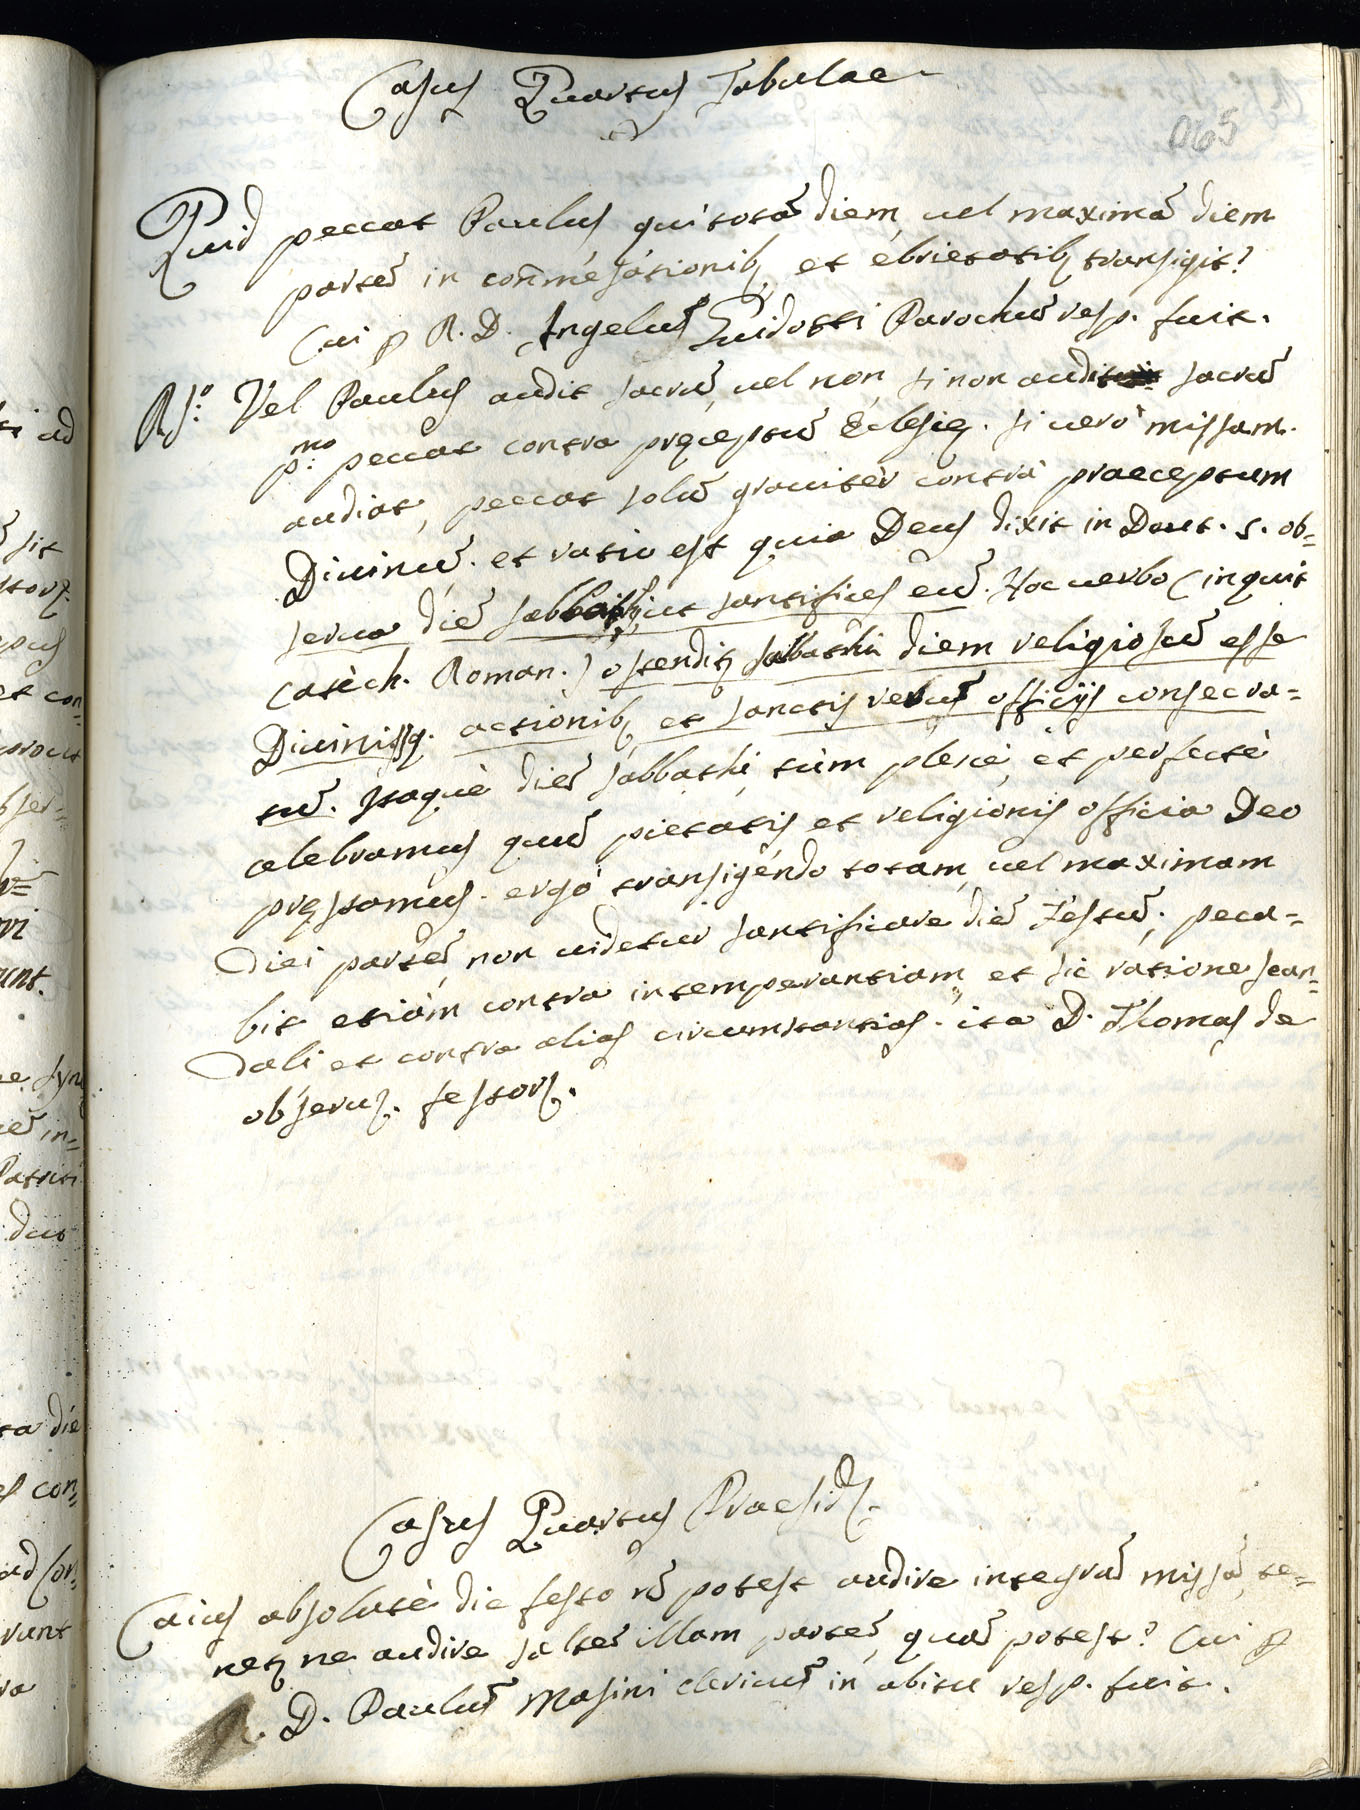 Casus Quartus Tabulae
065
Quid peccat Paulus qui totā diem, vel maximā diem
partē in com̄esationib; et ebrietatib; transigit?
Cui p R. D. Angelū Guidotti Parochū resp. fuit.
Rs.o Vel Paulus audit sacrū, vel non, si non audit sacrū
p.mo peccat contra pręceptū Eclesię. si vero missam
audiat, peccat solū graviter contra praeceptum
Divinū. et ratio est quia Deus dixit in Deut. 5. ob=
serva diē sabbathi, ut santifices eū. Hoc verbo (inquit
Catèch. Roman.) ostendit; sabbathi diem religiosū esse
Divinisq. actionib; et sanctis rebus officijs consecra=
tū. Itaquè diē sabbathi tùm plenè, et perfectè
celebramus quū pietatis et religionis officia Deo
pręstamus. ergo transigendo totam, vel maximam
diei partē, non videtur santificare diē Festū; pecca=
bit etiàm contra intemperantiam, et sic ratione scan=
dali et contra alias circumstantias. ita D. Thomas de
observ;. festor;.
Casus Quartus Praesid;.
Caius absolutè die festo nō potest audire integrā missā, te=
net; ne audire saltē illam partē, quā potest? Cui p
R. D. Paulū Masini clericū in abitu resp. fuit.